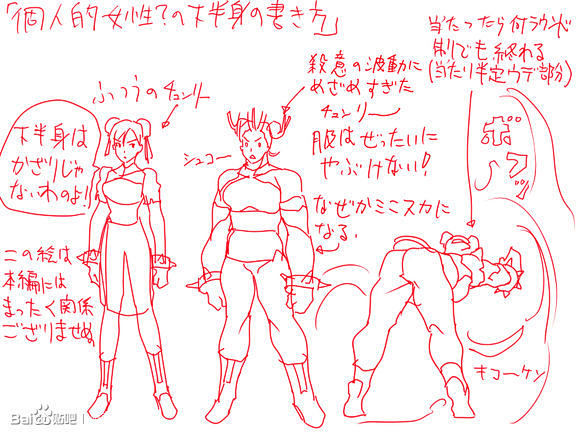 「個人的女性?の下半身の書き方」
当たったら何ラウンド
制でも終わる
(当たり判定ウデ部分)
殺意の波動に
めざめすぎた
チュンリー
服はぜったいに
やぶけない!
ふつうのチュンリー
下半身は
かざりじゃ
ないわのよ!
シュコー
なぜかミニスカに
なる.
この絵は
本編には
まったく関係
ござりませぬ
キコーケン
Bai贴吧